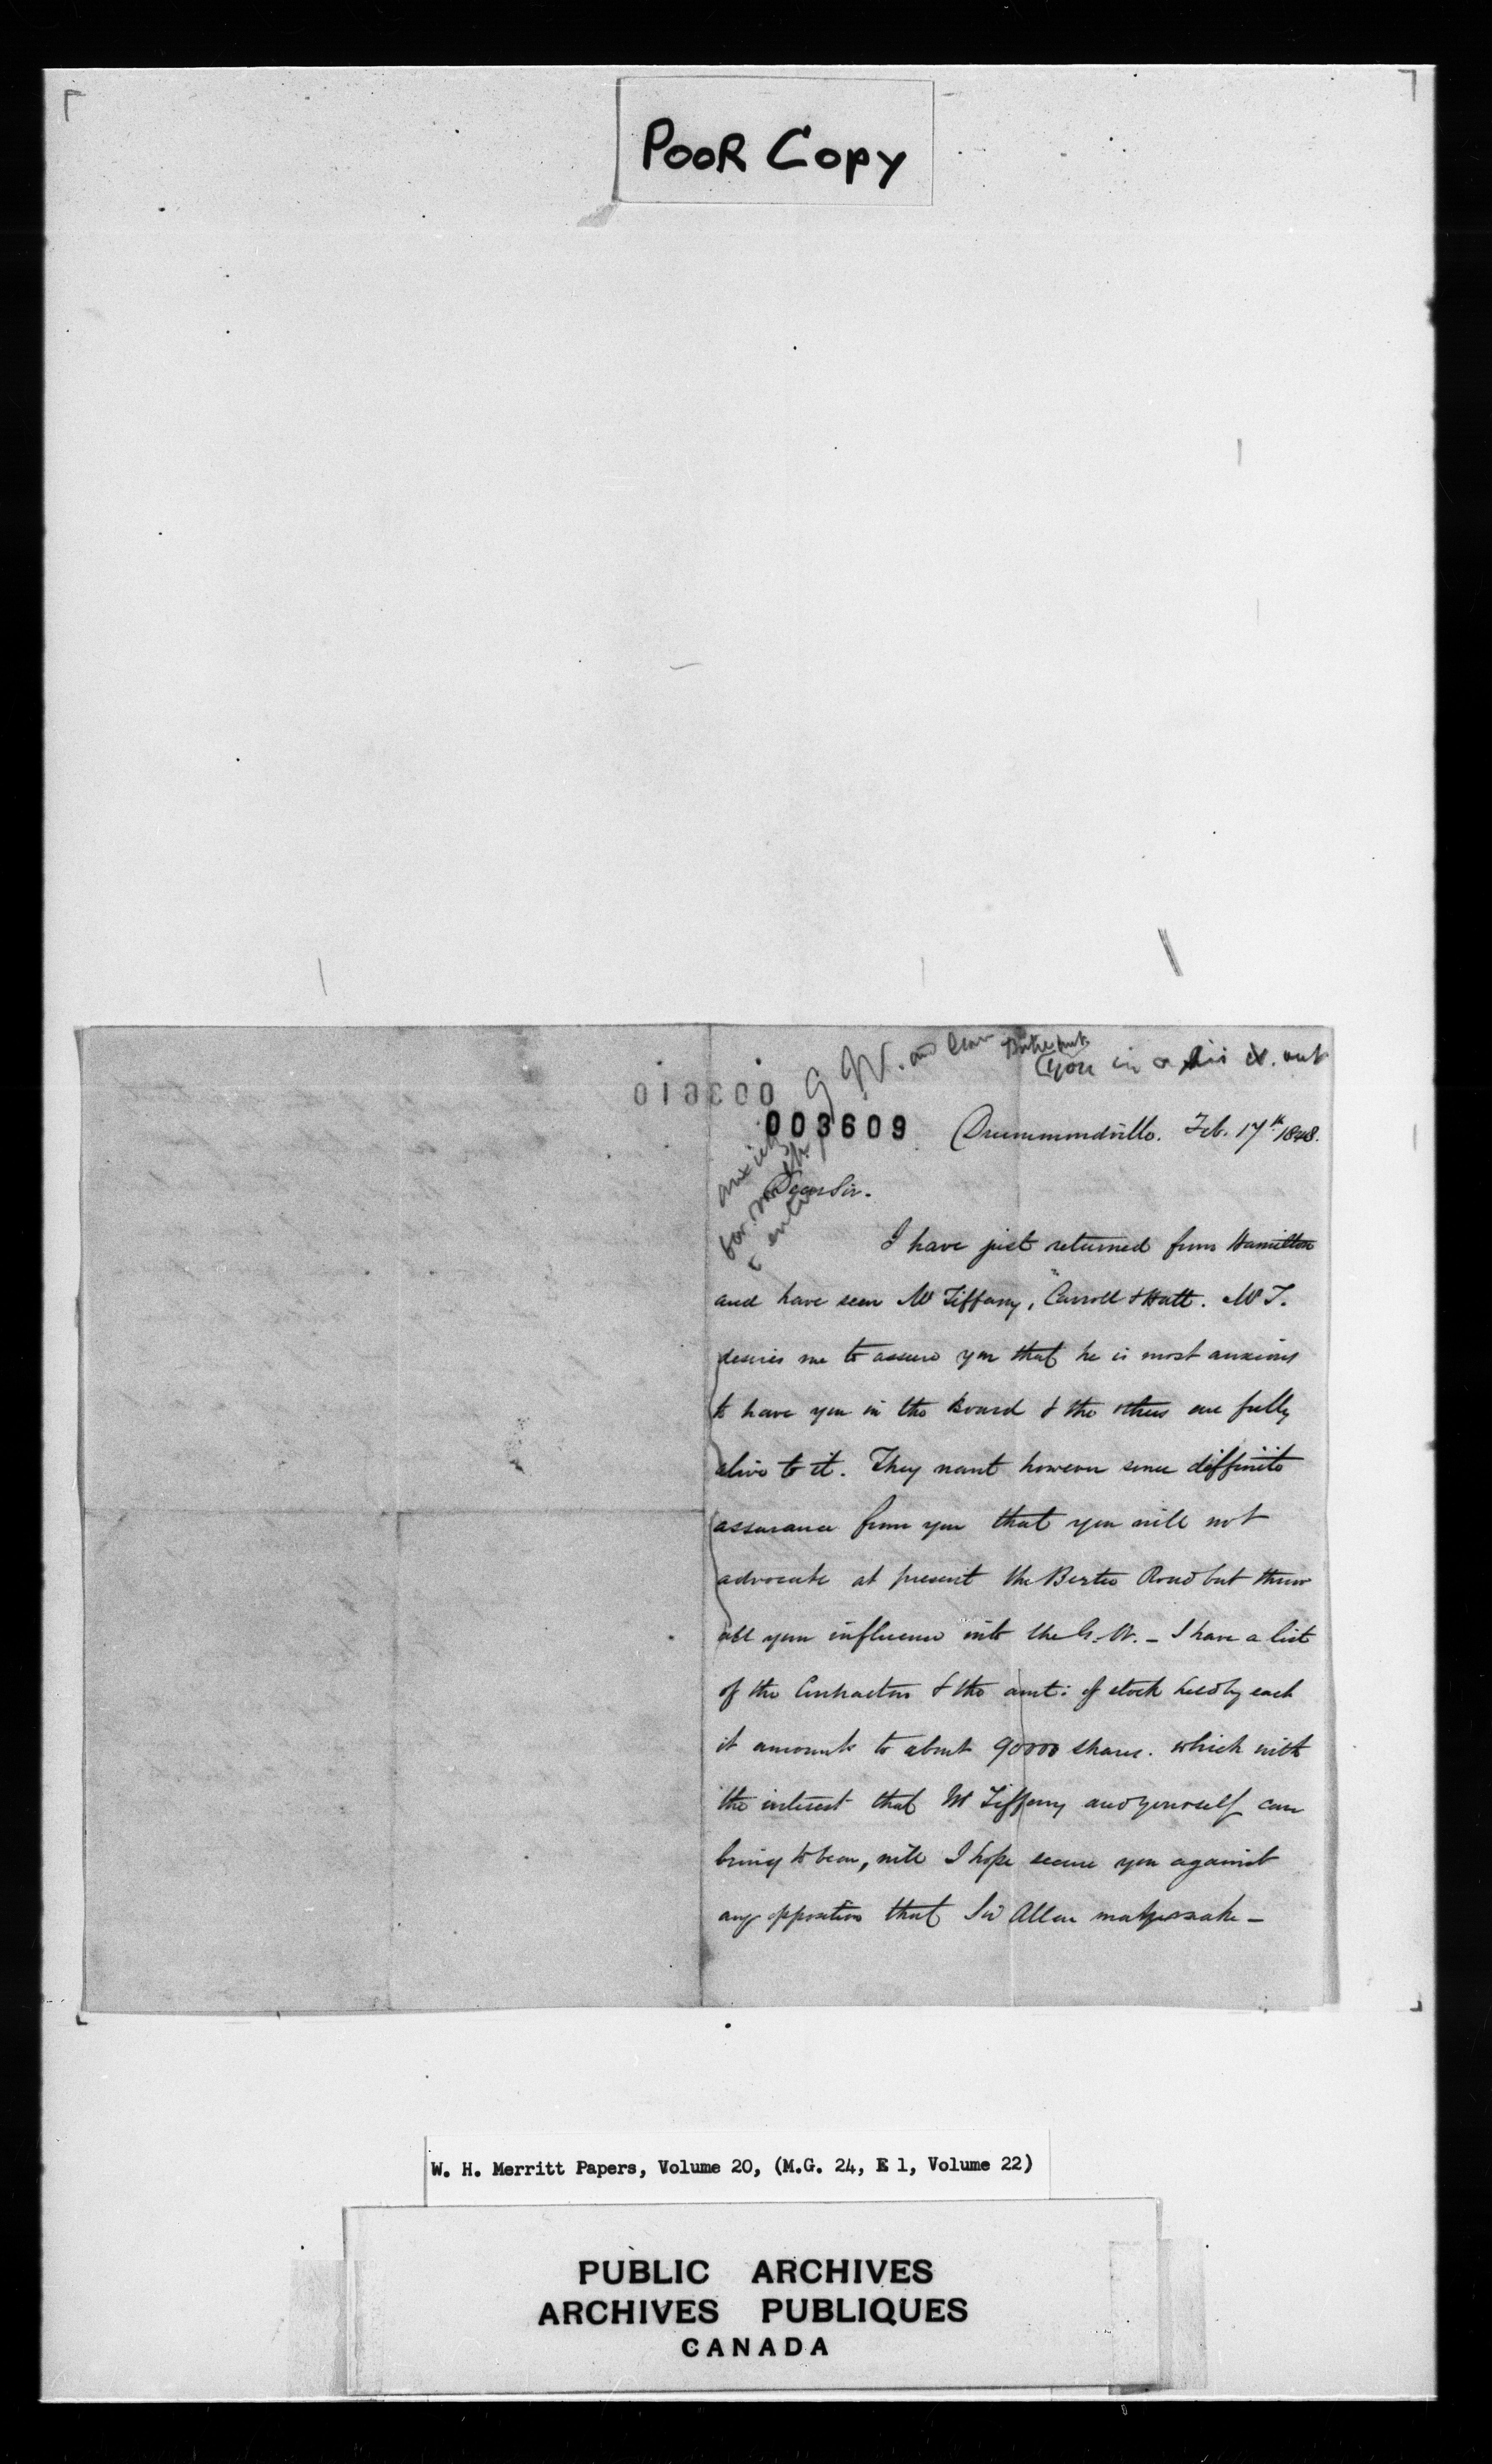 POOR COPY
G W. and
you in or his
003610
003609
Drummondville. Feb. 17th 1848.
Dear Sir.
I have just returned from Hamilton
and have seen Mr Tiffany, " Carroll & Hatt. Mr T.
desires me to assure you that he is most anxious
to have you in the Board & the others are fully
alive to it. They want however some diffinite
assurance from you that you will not
advocate at present the Bertie Road but throw
all your influence into the G. W. - I have a list
of the Contractors & the amt: of stock held by each
it amounts to about 90000 shares. which with
the interest that Mr Tiffany and yourself can
bring to bear, will I hope secure you against
any opposition that Sir Allan may make -
W. H. Merritt Papers, Volume 20, (M.G. 24, E 1, Volume 22)
PUBLIC ARCHIVES
ARCHIVES PUBLIQUES
CANADA